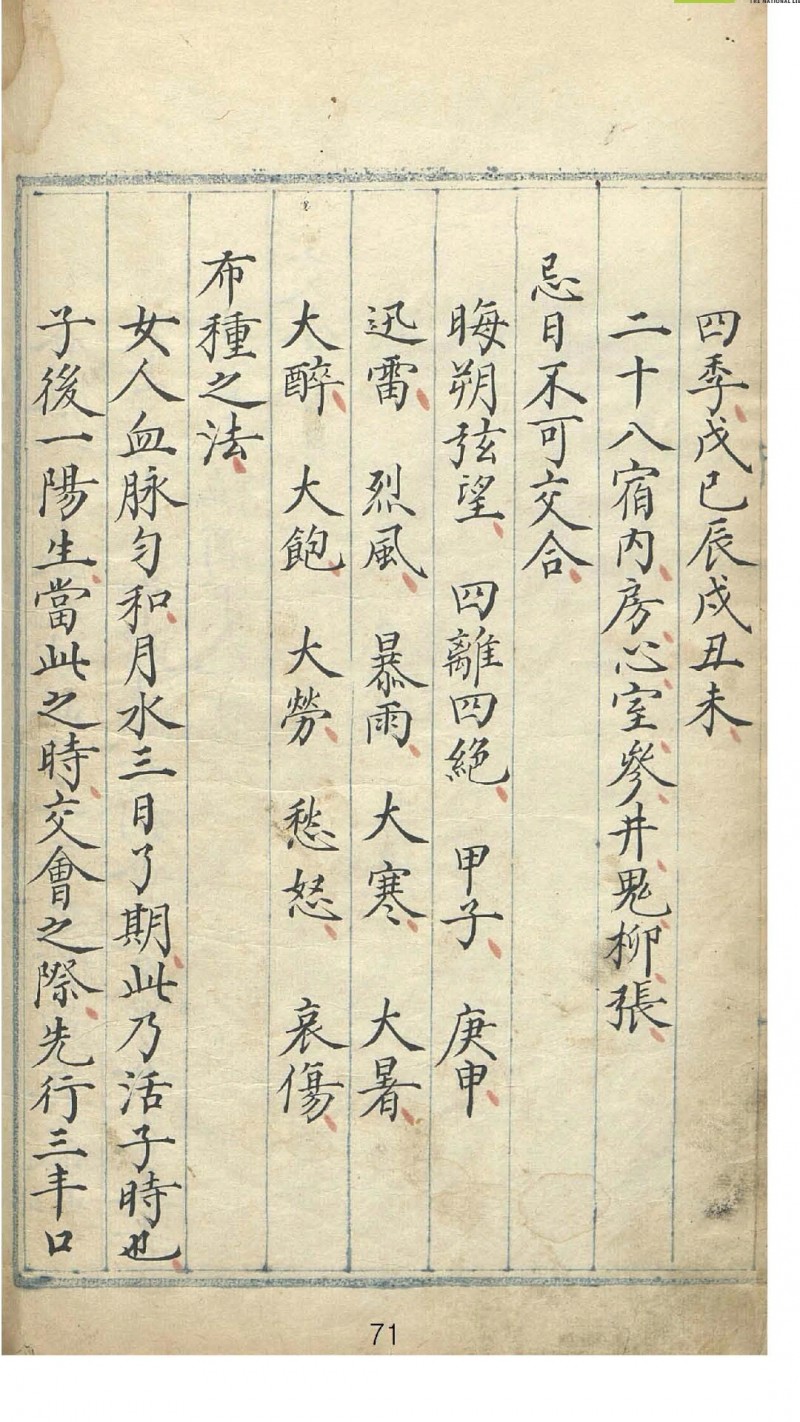 四季戊己辰戌丑未
二十八宿内房心室參井鬼柳張
忌日不可交合
晦朔弦望 四離四絕 甲子 庚申
迅雷 烈風 暴雨 大寒 大暑
大醉 大飽 大勞 愁怒 哀傷
布種之法
女人血脉勻和月水三日了期此乃活子時也
子後一陽生當此之時交會之際先行三丰口
71